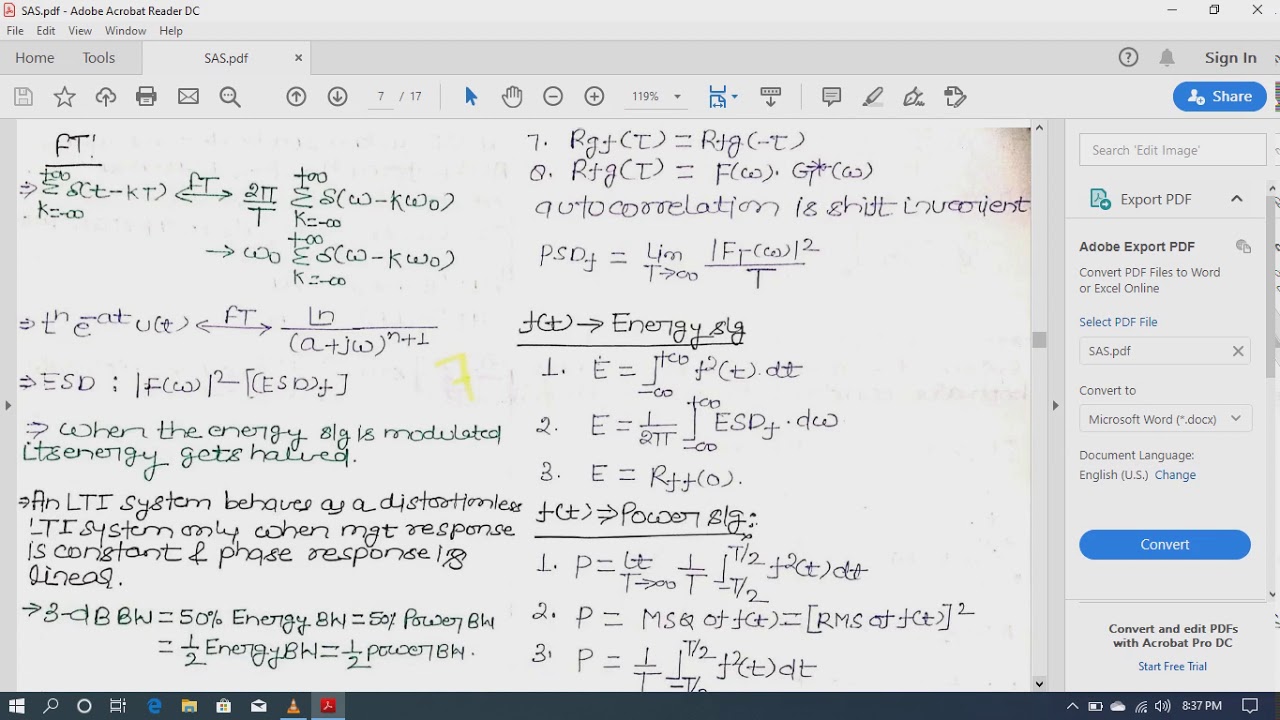 SAS.pdf - Adobe Acrobat Reader DC
File Edit View Window Help
Home Tools SAS.pdf × Sign In
7 / 17 119% Share
FT!
⇒ +∞ Σ K=-∞ δ(t-KT) ⟷FT 2π/T +∞ Σ K=-∞ δ(ω-Kω0)
→ ω0 +∞ Σ K=-∞ δ(ω-Kω0)
⇒ t^n e^-at u(t) ⟷FT Ln / (a+jω)^n+1
7
⇒ ESD : |F(ω)|^2 [(ESD)f]
⇒ When the energy s/g is modulated
its energy gets halved.
⇒ An LTI system behaves as a distortionless
LTI system only when mgt response
is constant & phase response is
linear.
→ 3-dB BW = 50% Energy BW = 50% Power BW
= 1/2 Energy BW = 1/2 power BW.
7. Rgf(τ) = Rfg(-τ)
8. Rfg(τ) = F(ω). G*(ω)
autocorrelation is shift invarient
PSDf = Lim T→∞ |FT(ω)|^2 / T
f(t) → Energy s/g
1. E = ∫ -∞ +∞ f^2(t).dt
2. E = 1/2π ∫ -∞ +∞ ESDf.dω
3. E = Rff(0).
f(t) ⇒ Power s/g:
1. P = Lt T→∞ 1/T ∫ -T/2 T/2 f^2(t)dt
2. P = MSQ of f(t) = [RMS of f(t)]^2
3. P = 1/T ∫ -T/2 T/2 f^2(t)dt
Search 'Edit Image'
Export PDF
Adobe Export PDF
Convert PDF Files to Word
or Excel Online
Select PDF File
SAS.pdf
Convert to
Microsoft Word (*.docx)
Document Language:
English (U.S.) Change
Convert
Convert and edit PDFs
with Acrobat Pro DC
Start Free Trial
8:37 PM